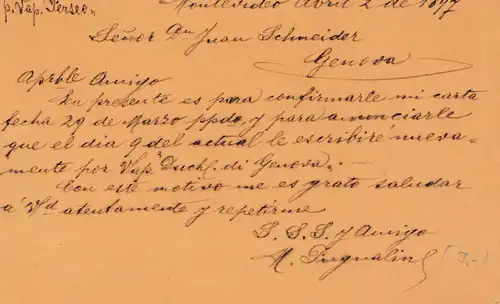 p. Vap. "Perseo"
Montevideo Abril 2 de 1897
Señor Dn Juan Schneider
Genova
Apreble Amigo
La presente es para confirmarle mi carta
fecha 29 de Marzo ppdo, y para anunciarle
que el dia 9 del actual le escribiré nueva-
mente por Vap. "Duch. di Genova".-
Con este motivo me es grato saludar
á Vd atentamente y repetirme
S. S. S. y Amigo